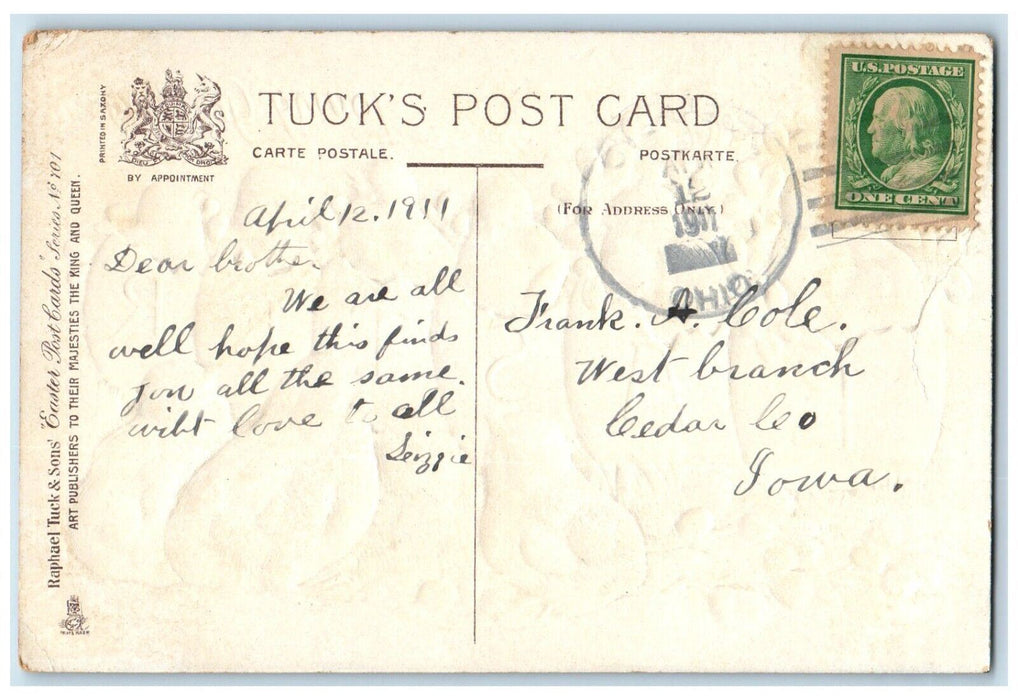 TUCK'S POST CARD
CARTE POSTALE.
POSTKARTE.
BY APPOINTMENT
PRINTED IN SAXONY
(FOR ADDRESS ONLY.)
U.S. POSTAGE
ONE CENT
APR
12
1911
OHIO
April 12, 1911
Dear brother.
We are all
well hope this finds
you all the same.
wiht love to all
Lizzie
Frank. A. Cole.
West branch
Cedar Co
Iowa.
Raphael Tuck & Sons' "Easter Post Cards" Series No 101
ART PUBLISHERS TO THEIR MAJESTIES THE KING AND QUEEN.